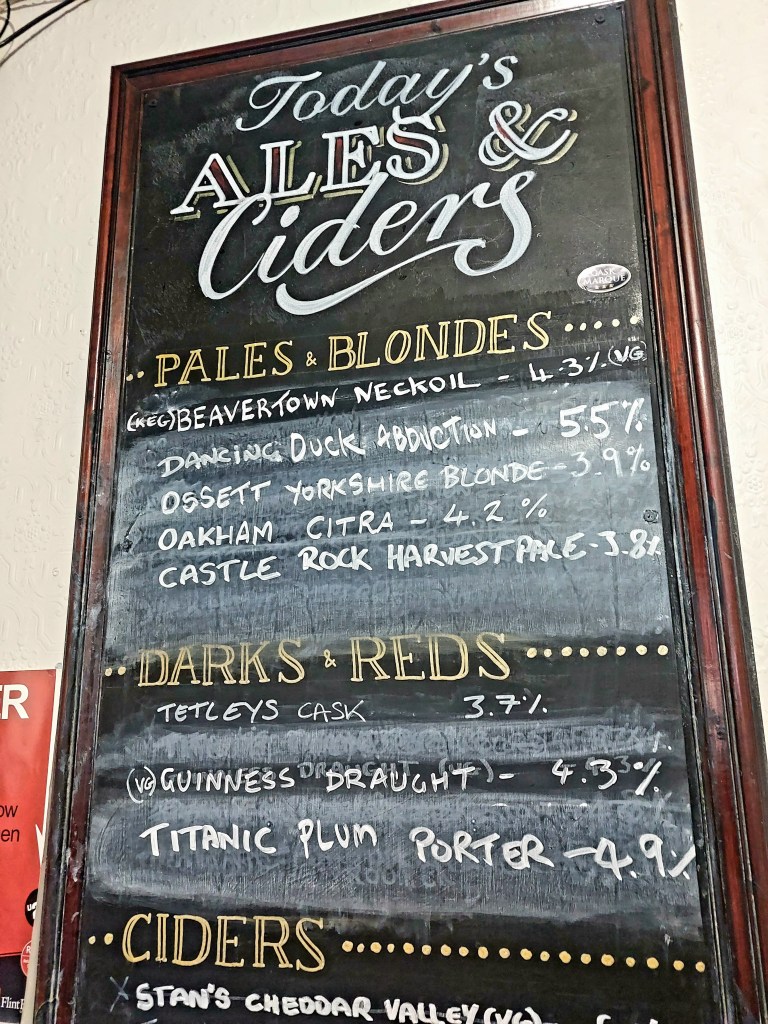 Today's
ALES &
Ciders
CASK
MARQUE
PALES & BLONDES
(KEG) BEAVERTOWN NECKOIL - 4.3% (VG)
DANCING DUCK ABDUCTION - 5.5%
OSSETT YORKSHIRE BLONDE - 3.9%
OAKHAM CITRA - 4.2 %
CASTLE ROCK HARVEST PALE - 3.8%
DARKS & REDS
TETLEYS CASK 3.7%
(VG) GUINNESS DRAUGHT - 4.3%
TITANIC PLUM PORTER - 4.9%
CIDERS
X STAN'S CHEDDAR VALLEY (VG) -
ER
ow
en
Flint